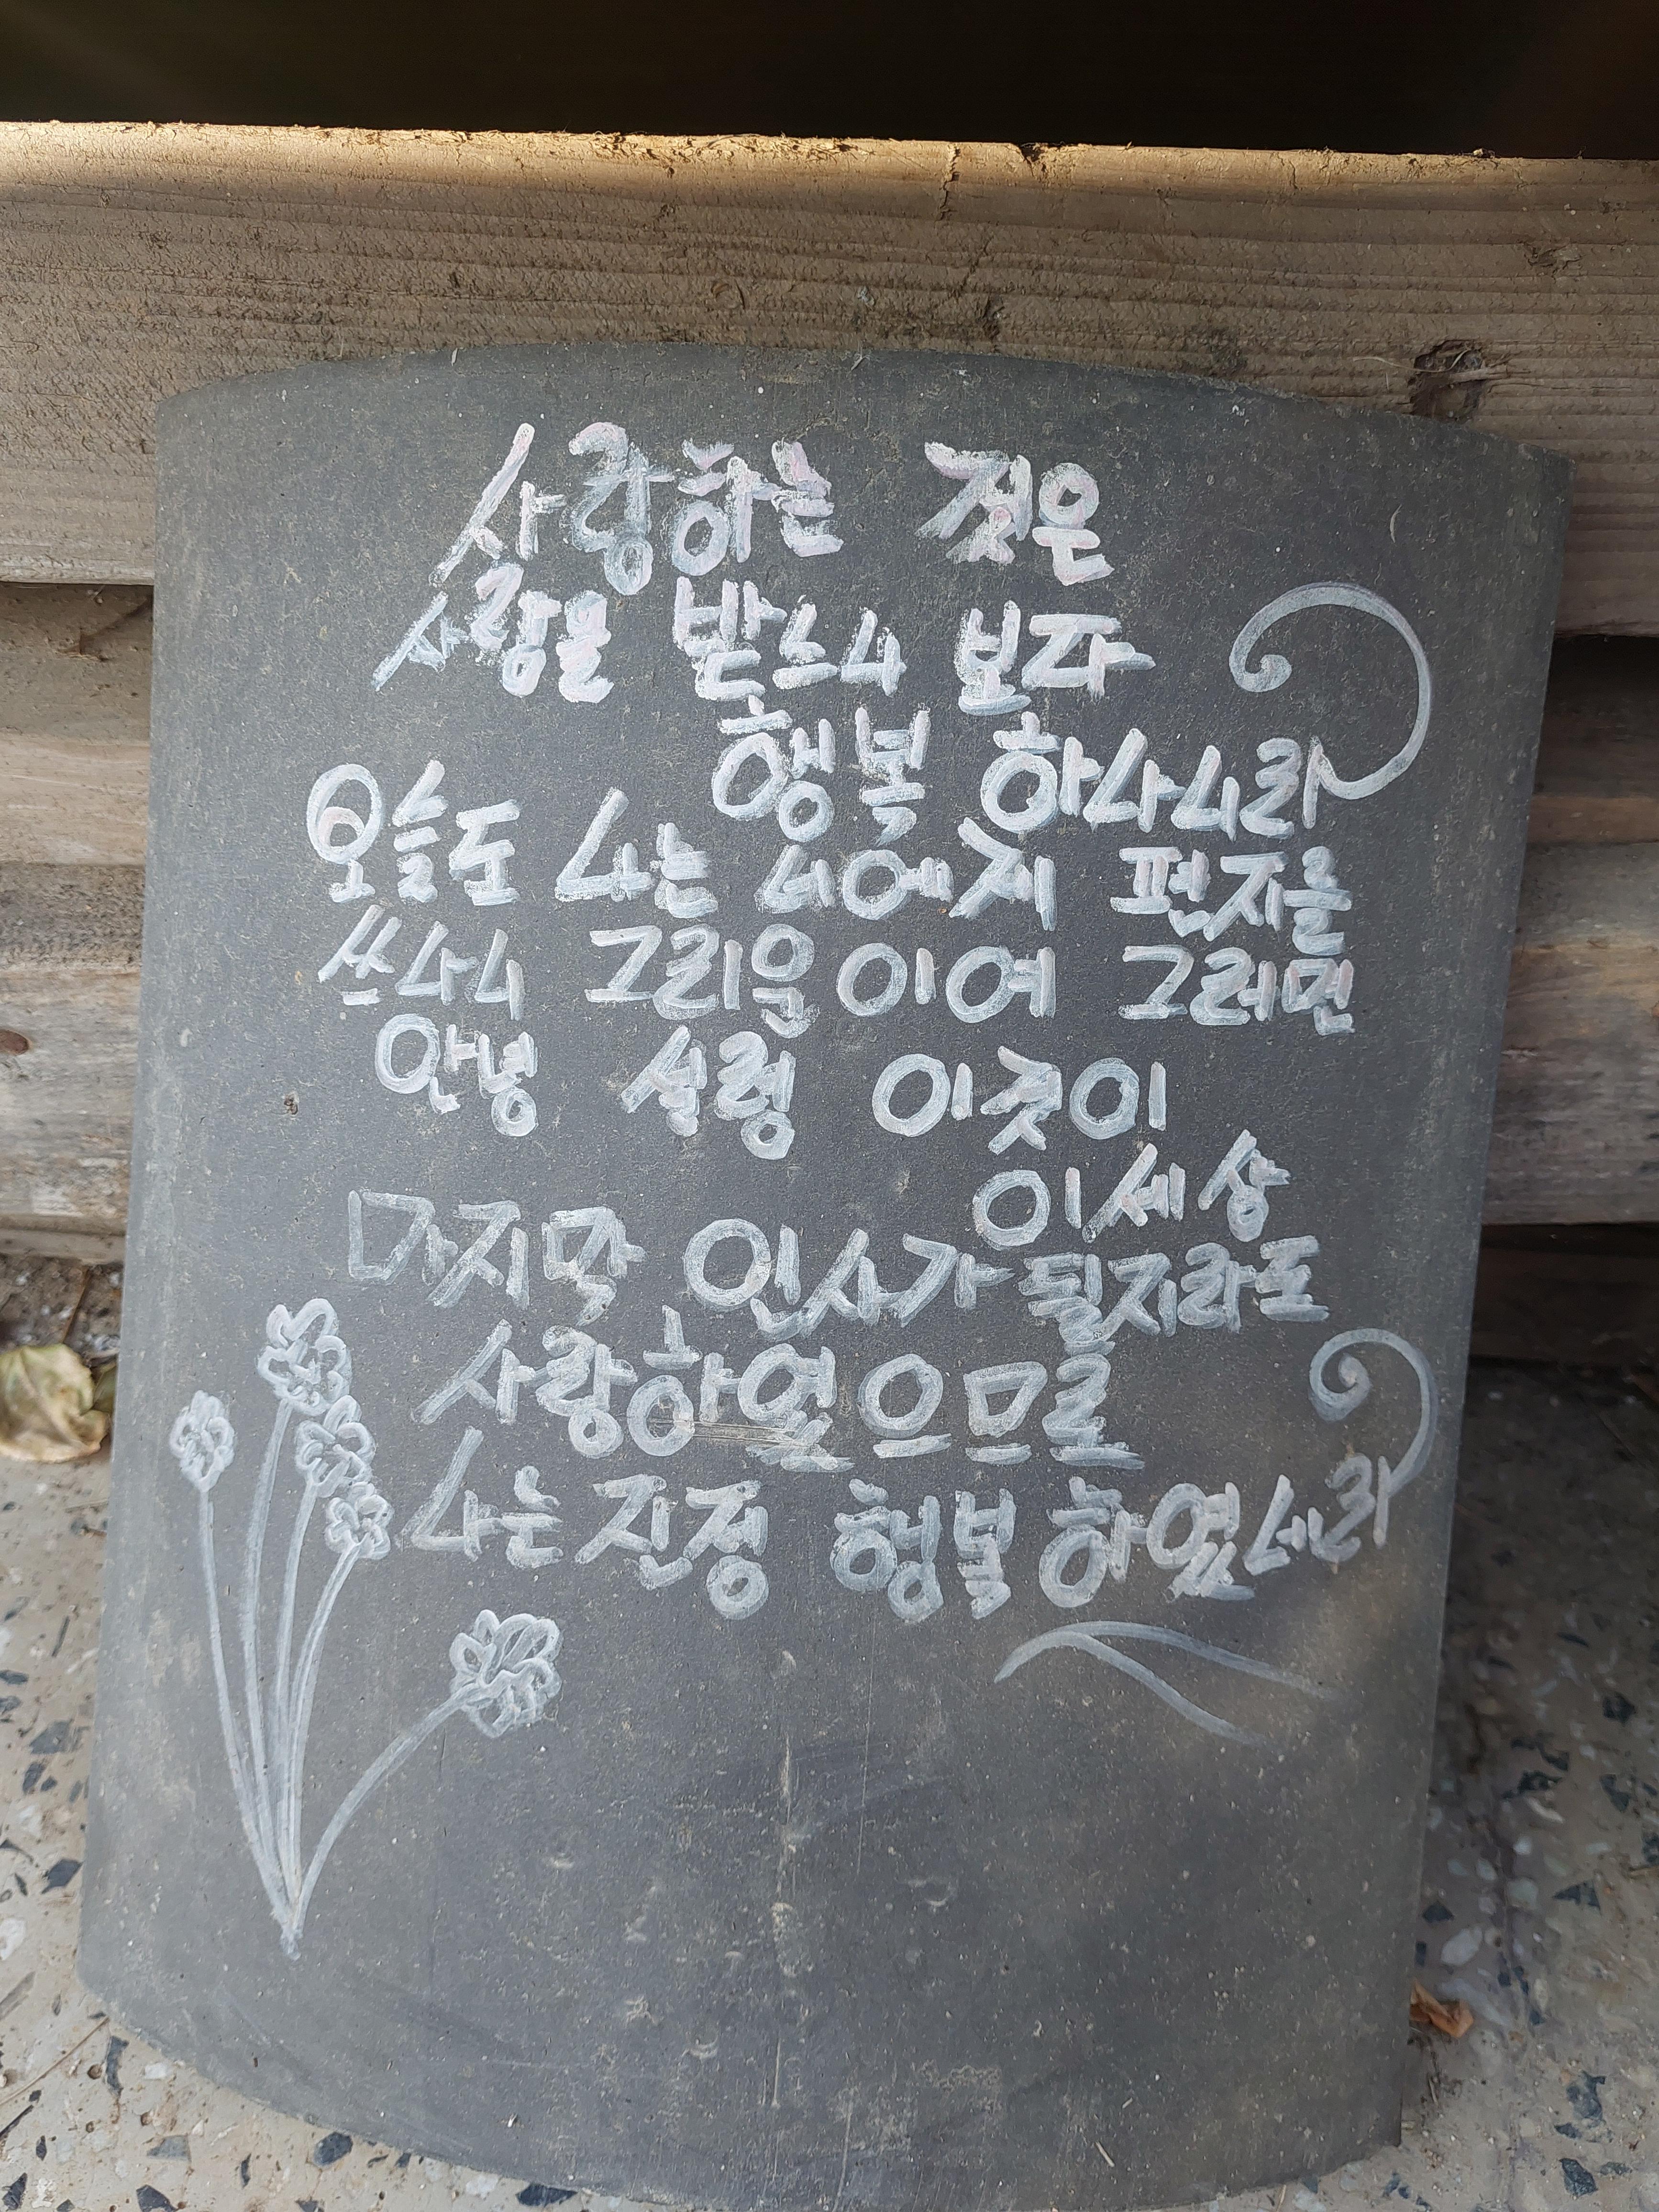 사랑하는 것은
사랑을 받느니 보다
행복 하나니라
오늘도 나는 너에게 편지를
쓰나니 그리운 이여 그러면
안녕 설령 이것이
이세상
마지막 인사가 될지라도
사랑하였으므로
나는 진정 행복하였네라